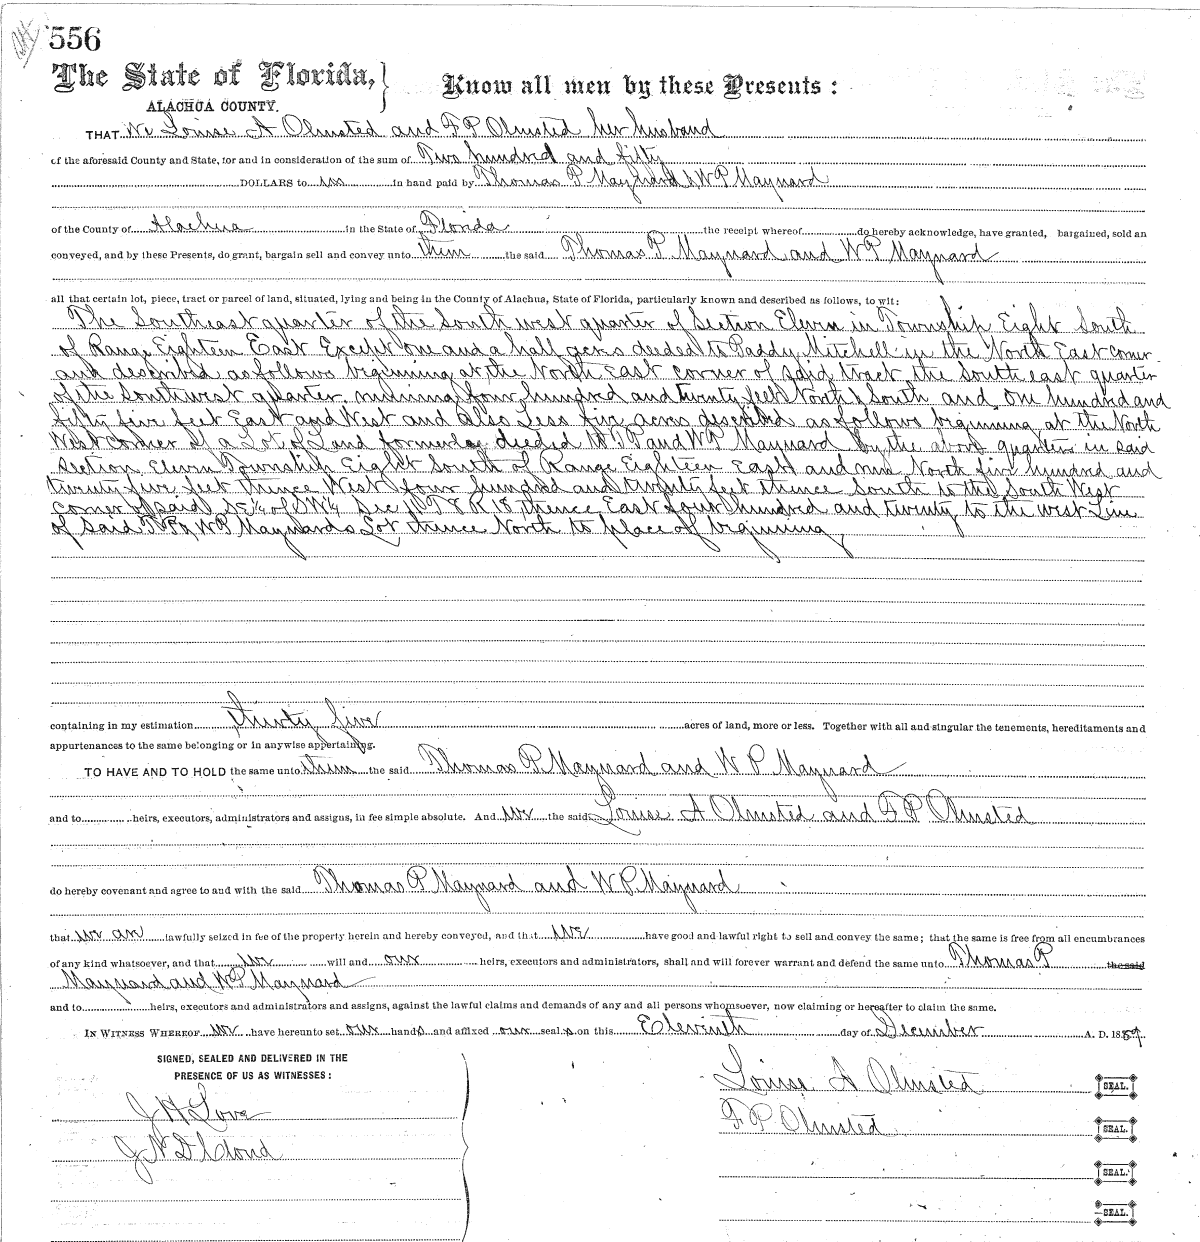 556
The State of Florida,
ALACHUA COUNTY.
Know all men by these Presents:
THAT We Louise A Olmsted and F P Olmsted her husband
of the aforesaid County and State, for and in consideration of the sum of Two hundred and fifty
DOLLARS to us in hand paid by Thomas P Maynard & W P Maynard
of the County of Alachua in the State of Florida the receipt whereof do hereby acknowledge, have granted, bargained, sold an
conveyed, and by these Presents, do grant, bargain sell and convey unto them the said Thomas P Maynard and W P Maynard
all that certain lot, piece, tract or parcel of land, situated, lying and being in the County of Alachua, State of Florida, particularly known and described as follows, to wit:
The Southeast quarter of the South west quarter of Section Eleven in Township Eight South
of Range Eighteen East Except one and a half acres deeded to Paddy Mitchell in the North East corner
and described as follows beginning at the North East corner of said tract the South east quarter
of the Southwest quarter. running four hundred and twenty feet North & South and one hundred and
fifty five feet East and West and also Less five acres described as follows beginning at the North
West corner of a Lot of Land formerly deeded T P and W P Maynard by the above quarter in said
Section Eleven Township Eight South of Range Eighteen East and run North five hundred and
twenty five feet thence West four hundred and twenty feet thence South to the South West
corner of said SE¼ of SW¼ Sec 11 T 8 R 18, thence East four hundred and twenty to the west Line
of said T P & W P Maynards Lot thence North to place of beginning
containing in my estimation thirty five acres of land, more or less. Together with all and singular the tenements, hereditaments and
appurtenances to the same belonging or in anywise appertaining.
TO HAVE AND TO HOLD the same unto them the said Thomas P Maynard and W P Maynard
and to heirs, executors, administrators and assigns, in fee simple absolute. And we the said Louise A Olmsted and F P Olmsted
do hereby covenant and agree to and with the said Thomas P Maynard and W P Maynard
that we are lawfully seized in fee of the property herein and hereby conveyed, and that we have good and lawful right to sell and convey the same; that the same is free from all encumbrances
of any kind whatsoever, and that we will and our heirs, executors and administrators, shall and will forever warrant and defend the same unto Thomas P the said
Maynard and W P Maynard
and to heirs, executors and administrators and assigns, against the lawful claims and demands of any and all persons whomsoever, now claiming or hereafter to claim the same.
IN WITNESS WHEREOF we have hereunto set our hands and affixed our seals on this Eleventh day of December A. D. 18
SIGNED, SEALED AND DELIVERED IN THE
PRESENCE OF US AS WITNESSES:
J H Love
Louise A Olmsted SEAL.
F P Olmsted SEAL.
SEAL.
SEAL.